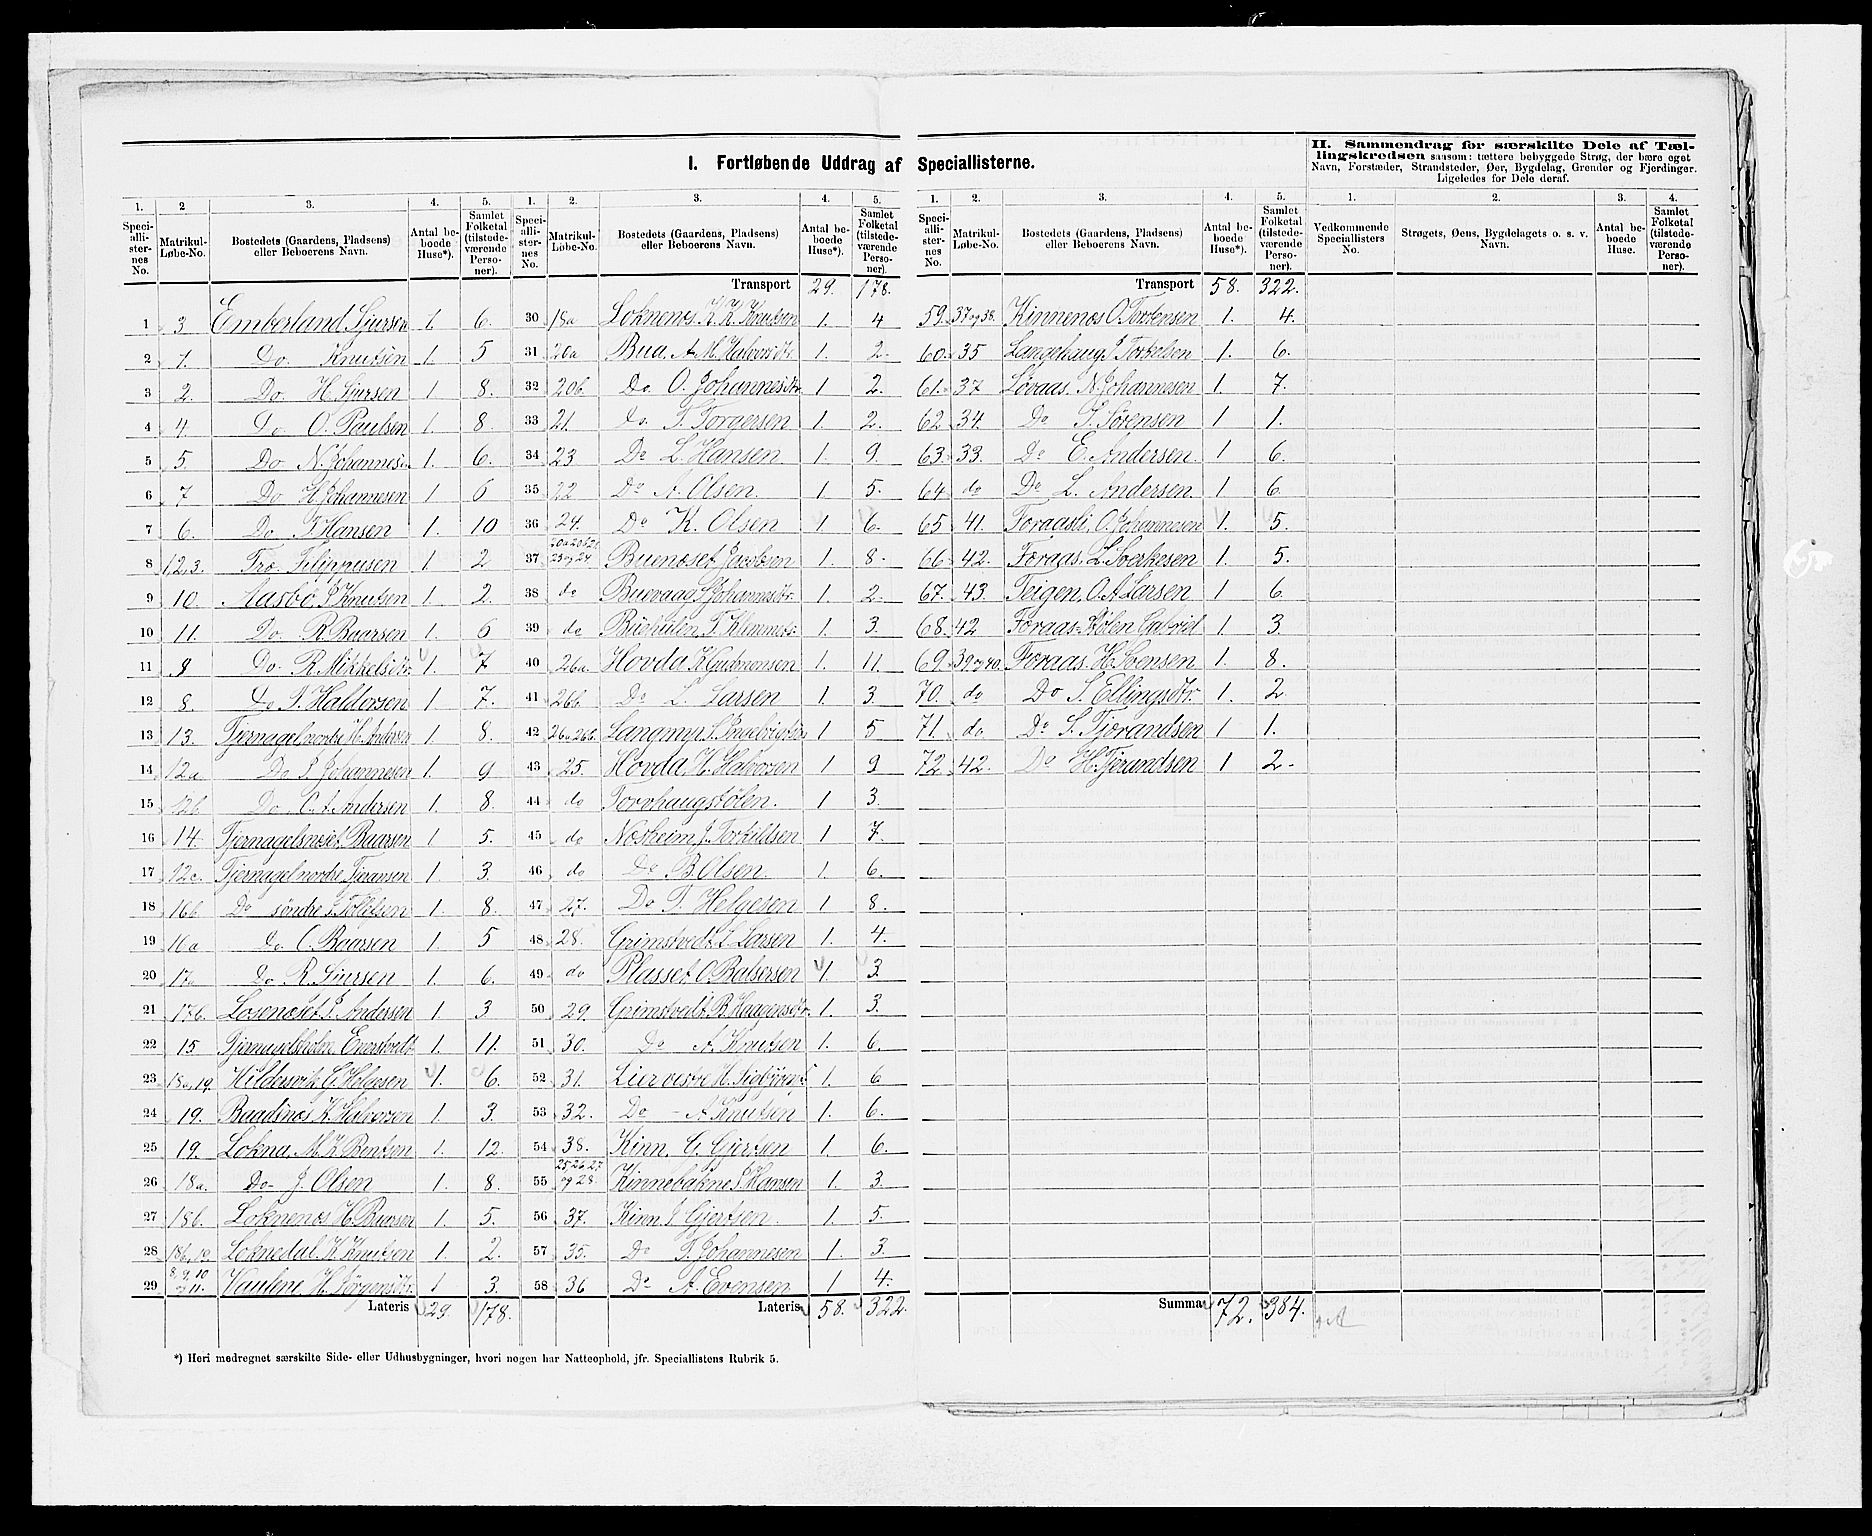 I. Fortløbende Uddrag af Speciallisterne.
II. Sammendrag for særskilte Dele af Tællingskredsen saasom: tættere bebyggede Strøg, der bære eget
Navn, Forstæder, Strandsteder, Øer, Bygdelag, Grender og Fjerdinger.
Ligeledes for Dele deraf.
1. 2 3. 4. 5.
Speciallisternes No. Matrikul-Løbe-No. Bostedets (Gaardens, Pladsens) eller Beboerens Navn. Antal beboede Huse*). Samlet Folketal (tilstedeværende Personer).
1 3 Emberland Sjursen 1. 6.
2 1. Do Knutsen 1. 5
3 2. Do. H. Sjursen 1 8.
4 4. Do O. Paulsen 1 8.
5 5 Do N. Johannes 1. 6.
6 7 Do H. Johannesen 1 6
7 6. Do T. Hansen 1. 10
8 1,2,3. Træ. Filippusen 1 2
9 10. Aasbø J Knutsen 1 2.
10 11. Do. R. Baarsen 1. 6
11 8 Do. R. Mikkelsdtr 1. 7
12 8. Do J. Haldorsen 1 7.
13 13. Tjernagel nordre H. Andersen 1 8.
14 12a Do J. Johannesen 1. 9
15 12b Do. O. A. Andersen 1. 8.
16 14. Tjernagelsneset Baarsen 1 5.
17 12c. Tjernagel nordre Tjeransen 1 3.
18 16b Do søndre J. Tollefsen 1. 8.
19 16a Do. O. Baarsen 1. 5
20 17a Do R. Sjursen 1. 6.
21 17b. Losneset J. Andersen 1 3
22 15. Tjernagelsholm. Enerstvedt 1. 11.
23 18a,19. Hildersvik G. Helgesen 1. 6.
24 19. Baadsnes K. Halvorsen 1. 3.
25 19. Lokna, M. K. Bentsen 1. 12.
26 18a. Do J. Olsen 1. 8.
27 18b. Loknenes H. Baarsen 1. 5.
28 18b,19 Loknedal. K. Knutsen 1. 2.
29 8, 9, 10 og 11. Vaulene H. Jørgensdtr. 1 3.
Lateris 29. 178.
1. 2. 3. 4. 5.
Speciallisternes No. Matrikul-Løbe-No. Bostedets (Gaardens, Pladsens) eller Beboerens Navn. Antal beboede Huse*). Samlet Folketal (tilstedeværende Personer).
Transport 29. 178.
30 18a Loknenes K. K. Knutsen 1. 4
31 20a Bua, A. M. Halvorsdtr. 1. 2.
32 20b. Do. O. Johannesdtr 1 2.
33 21. do. T. Torgersen 1 2.
34 23 Do L. Hansen 1. 9.
35 22 Do A. Olsen. 1. 5.
36 24. Do K. Olsen 1 6.
37 20a 20b 21. 23 og 24. Bueneset Jacobsen 1 8.
38 do Buevaag, J Johannesdtr. 1. 2.
39 do Buehulen, T. Klemmets. 1. 3.
40 26a. Hovda K Gudmunsen 1. 11.
41 26b. Do L. Larsen 1. 3
42 26a 26b. Langmyr, S. Ingebrigtsen 1 5
43 25. Hovda, H. Halvorsen 1 9
44 do Torvhaugstølen. 1 3.
45 do Næsheim J. Torkildsen 1 7.
46 do Do B. Olsen. 1. 6.
47 27. Do T. Helgesen 1 8.
48 28. Grimstvedt L Larsen 1. 4.
49 do Plasset O. Balsersen 1. 3.
50 29. Grimstvedt B. Haagensdtr. 1. 3.
51 30. Do A. Knutsen 1. 6.
52 31. Lier vestre H. Sigbjørns. 1. 6
53 32. Do - A. Knutsen 1. 6.
54 38. Kinn, G. Gjertsen 1 6.
55 25, 26, 27 og 28. Kinnebakne J Hansen 1. 3.
56 37. Kinn J. Gjertsen. 1. 5.
57 35. Do T. Johannesen 1. 3.
58 36 Do A. Evensen 1 4.
Lateris 58. 322.
1. 2. 3. 4. 5.
Speciallisternes No. Matrikul-Løbe-No. Bostedets (Gaardens, Pladsens) eller Beboerens Navn. Antal beboede Huse*). Samlet Folketal (tilstedeværende Personer).
Transport 58. 322.
59. 37 og 38. Kinnenes O. Torstensen 1. 4.
60. 35 Langehaug J Torkelsen 1. 6.
61. 37 Løvaas. N. Johannesen 1. 7.
62 34. Do J. Sørensen 1 1.
63. 33. Do E. Andersen. 1 6.
64 do Do L. Andersen. 1 6.
65 41. Foraasli, O. Johannesen 1. 5.
66 42. Foraas. L. Sverkesen 1. 5.
67. 43. Teigen, O. A. Larsen 1 6.
68. 42 Foraas-Stølen Gabriel 1. 3.
69. 39 og 40. Foraas. H. Svensen 1. 8.
70. do Do S. Ellingsdtr. 1. 2
71. do Do S. Tjørandsen 1 1.
72. 42. Do H. Tjerandsen 1 2.
Summa 72. 384.
1. 2. 3. 4.
Vedkommende Speciallisters No. Strøgets, Øens, Bygdelagets o. s. v. Navn. Antal beboede Huse. Samlet Folketal (tilstedeværende Personer).
*) Heri medregnet særskilte Side- eller Udhusbygninger, hvori nogen har Natteophold, jfr. Speciallistens Rubrik 5.